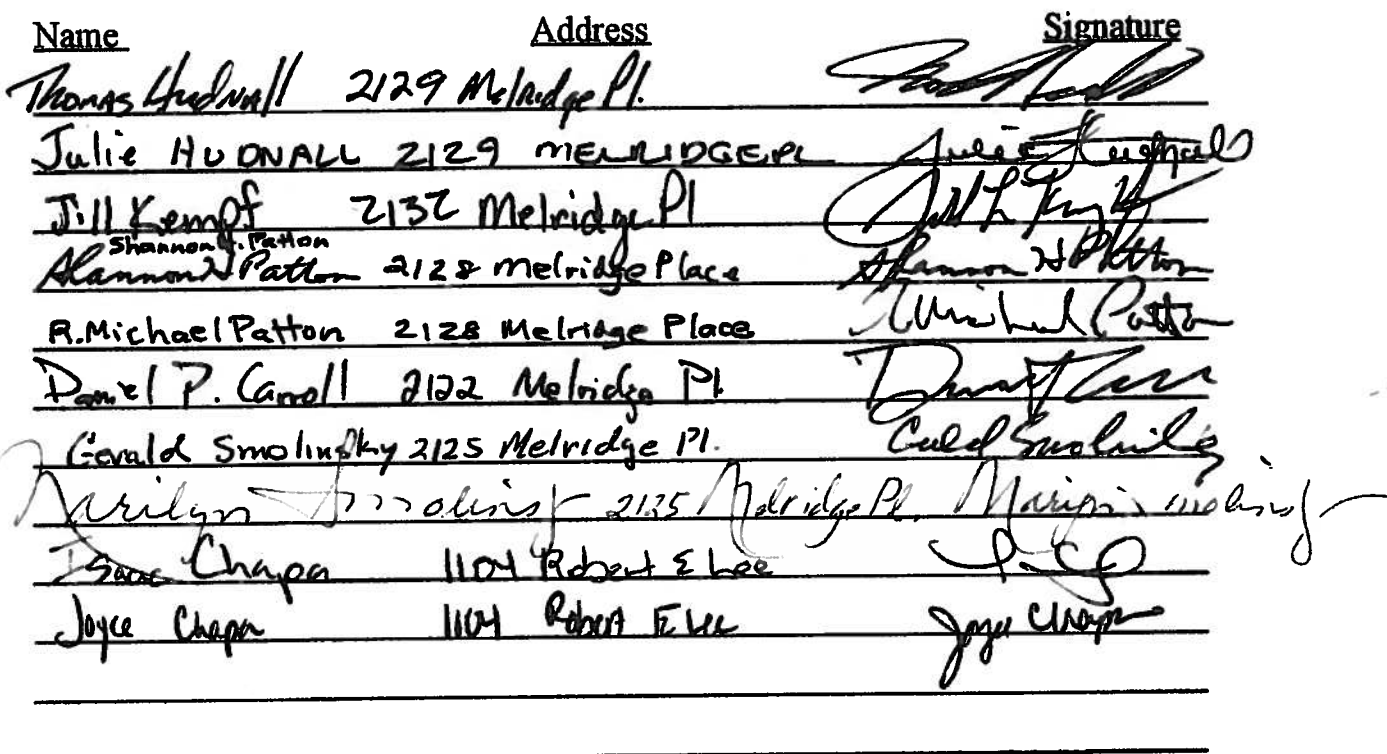 Name Address Signature
Thomas Hudnall 2129 Melridge Pl.
Julie HUDNALL 2129 MELRIDGE PL Julie Hudnall
Jill Kempf 2132 Melridge Pl Jill L Kempf
Shannon H. Patton
Shannon H Patton 2128 Melridge Place Shannon H Patton
R. Michael Patton 2128 Melridge Place R Michael Patton
Daniel P. Carroll 2122 Melridge Pl
Gerald Smolinsky 2125 Melridge Pl. Gerald Smolinsky
Marilyn Smolinsky 2125 Melridge Pl. Marilyn Smolinsky
Isaac Chapa 1104 Robert E Lee
Joyce Chapa 1104 Robert E Lee Joyce Chapa